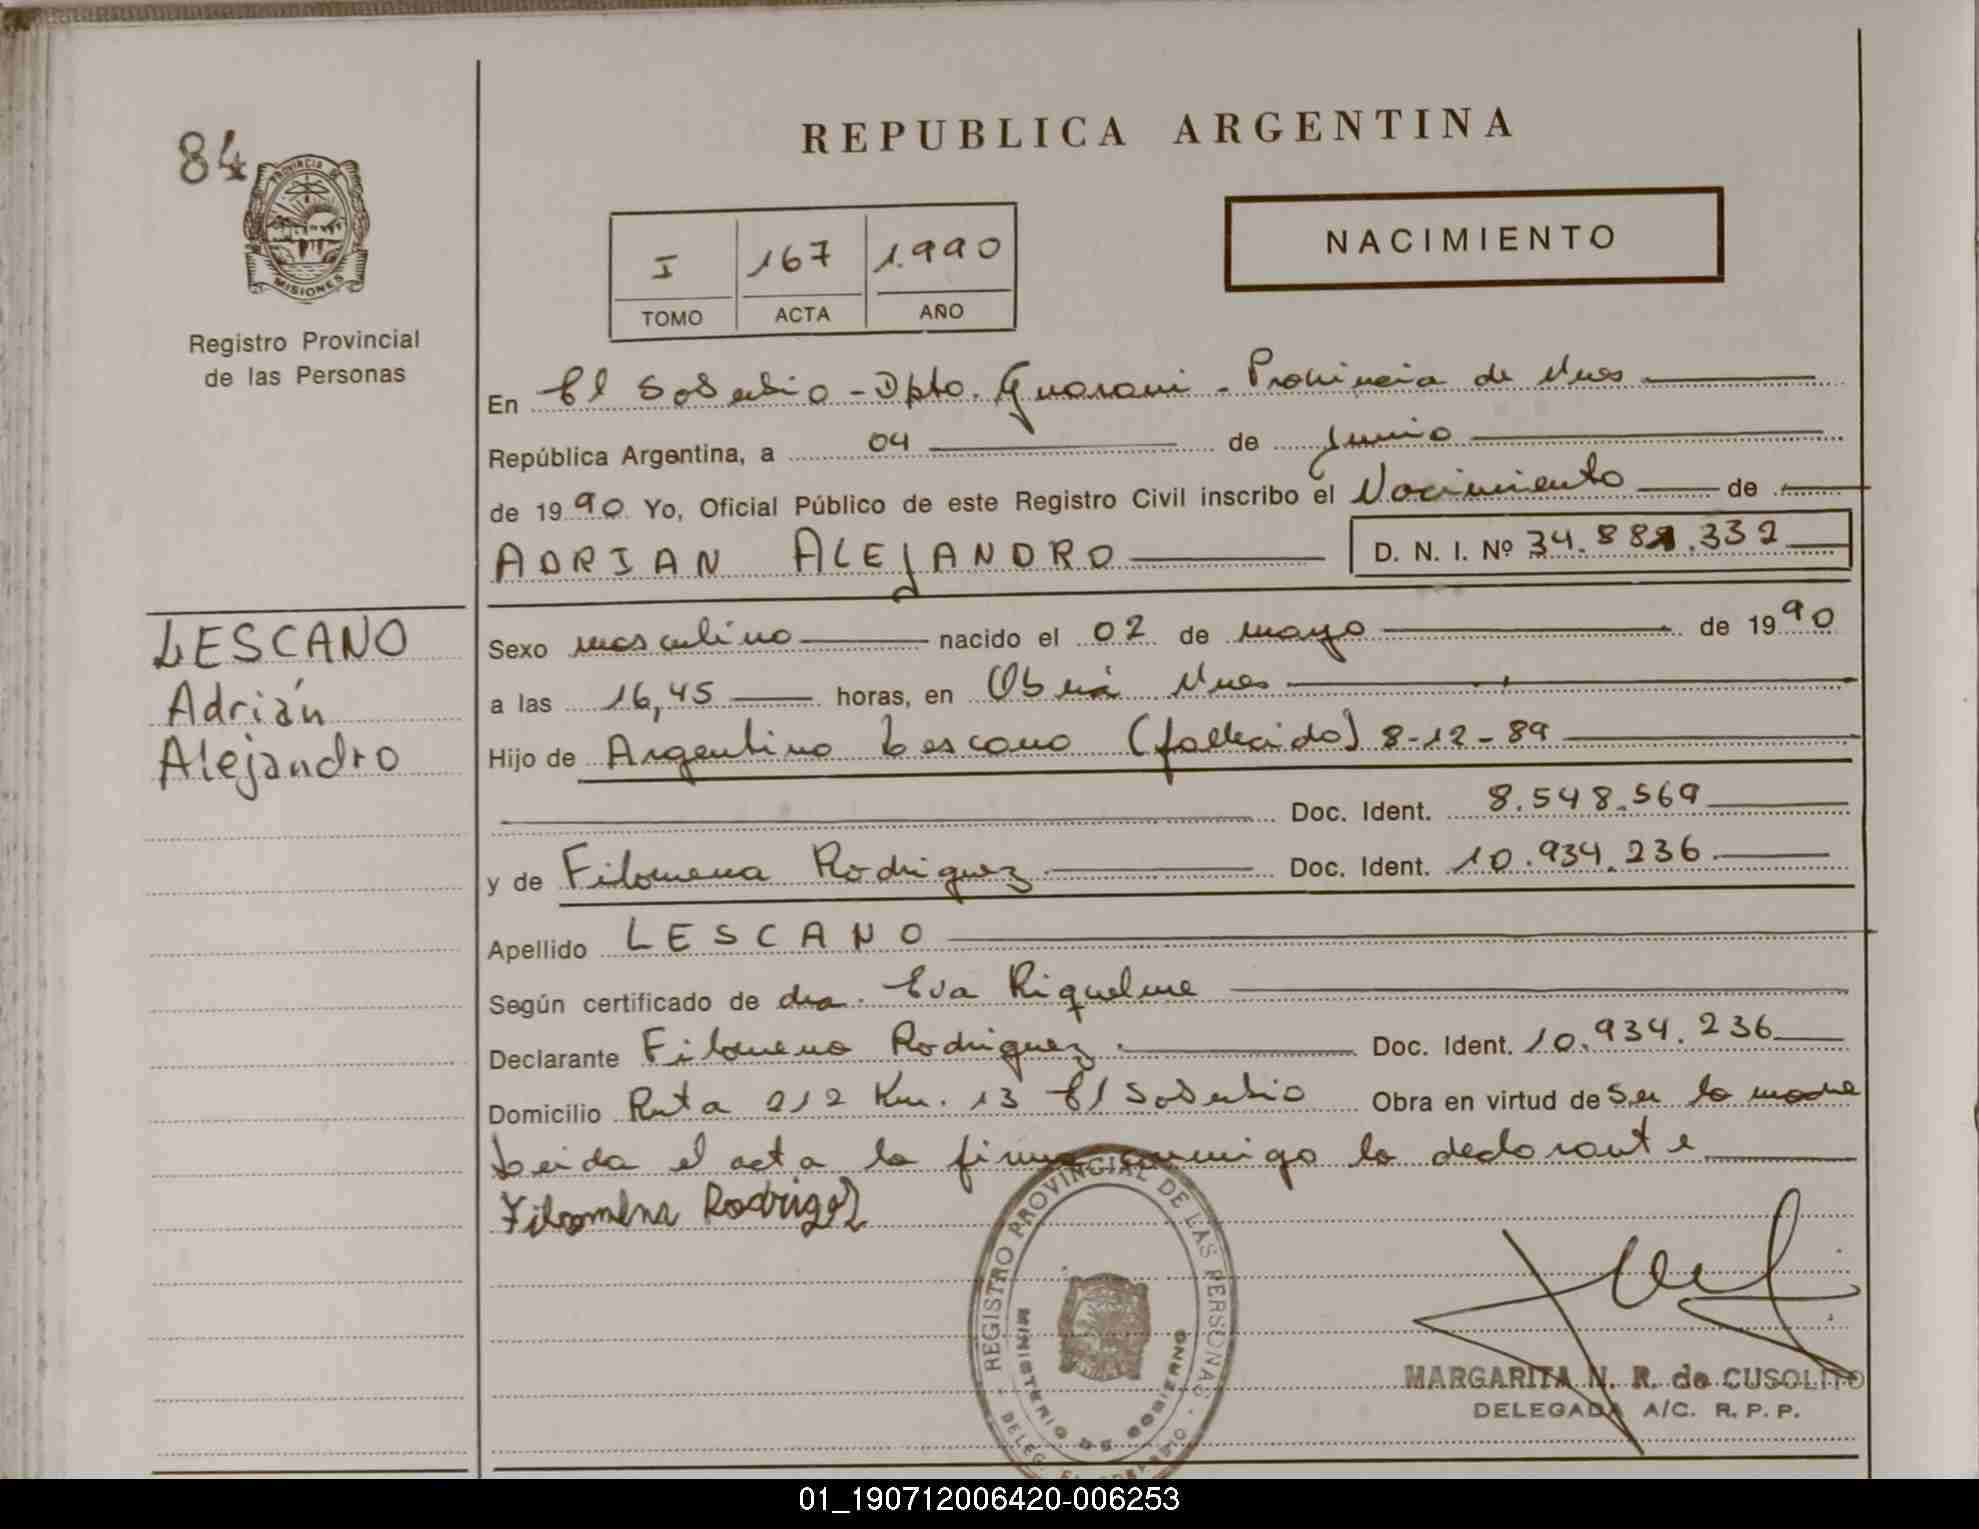 84
PROVINCIA DE
MISIONES
Registro Provincial
de las Personas
REPUBLICA ARGENTINA
I 167 1.990
TOMO ACTA AÑO
NACIMIENTO
En El Soberbio - Dpto. Guarani - Provincia de Mnes
República Argentina, a 04 de Junio
de 1990 Yo, Oficial Público de este Registro Civil inscribo el Nacimiento de
ADRIAN ALEJANDRO D. N. I. Nº 34.881.332
LESCANO
Adrián
Alejandro
Sexo masculino nacido el 02 de mayo de 1990
a las 16,45 horas, en Oberá Mnes
Hijo de Argentino Lescano (fallecido) 8-12-89
Doc. Ident. 8.548.569
y de Filomena Rodriguez Doc. Ident. 10.934.236
Apellido LESCANO
Según certificado de dra. Eva Riquelme
Declarante Filomena Rodriguez Doc. Ident. 10.934.236
Domicilio Ruta 212 Km. 13 El Soberbio Obra en virtud de Ser la madre
Leida el acta la firma conmigo la declarante
Filomena Rodrigez
REGISTRO PROVINCIAL DE LAS PERSONAS
MINISTERIO DE GOBIERNO
DELEG. EL SOBERBIO
MARGARITA N. R. de CUSOLITO
DELEGADA A/C. R. P. P.
01_190712006420-006253